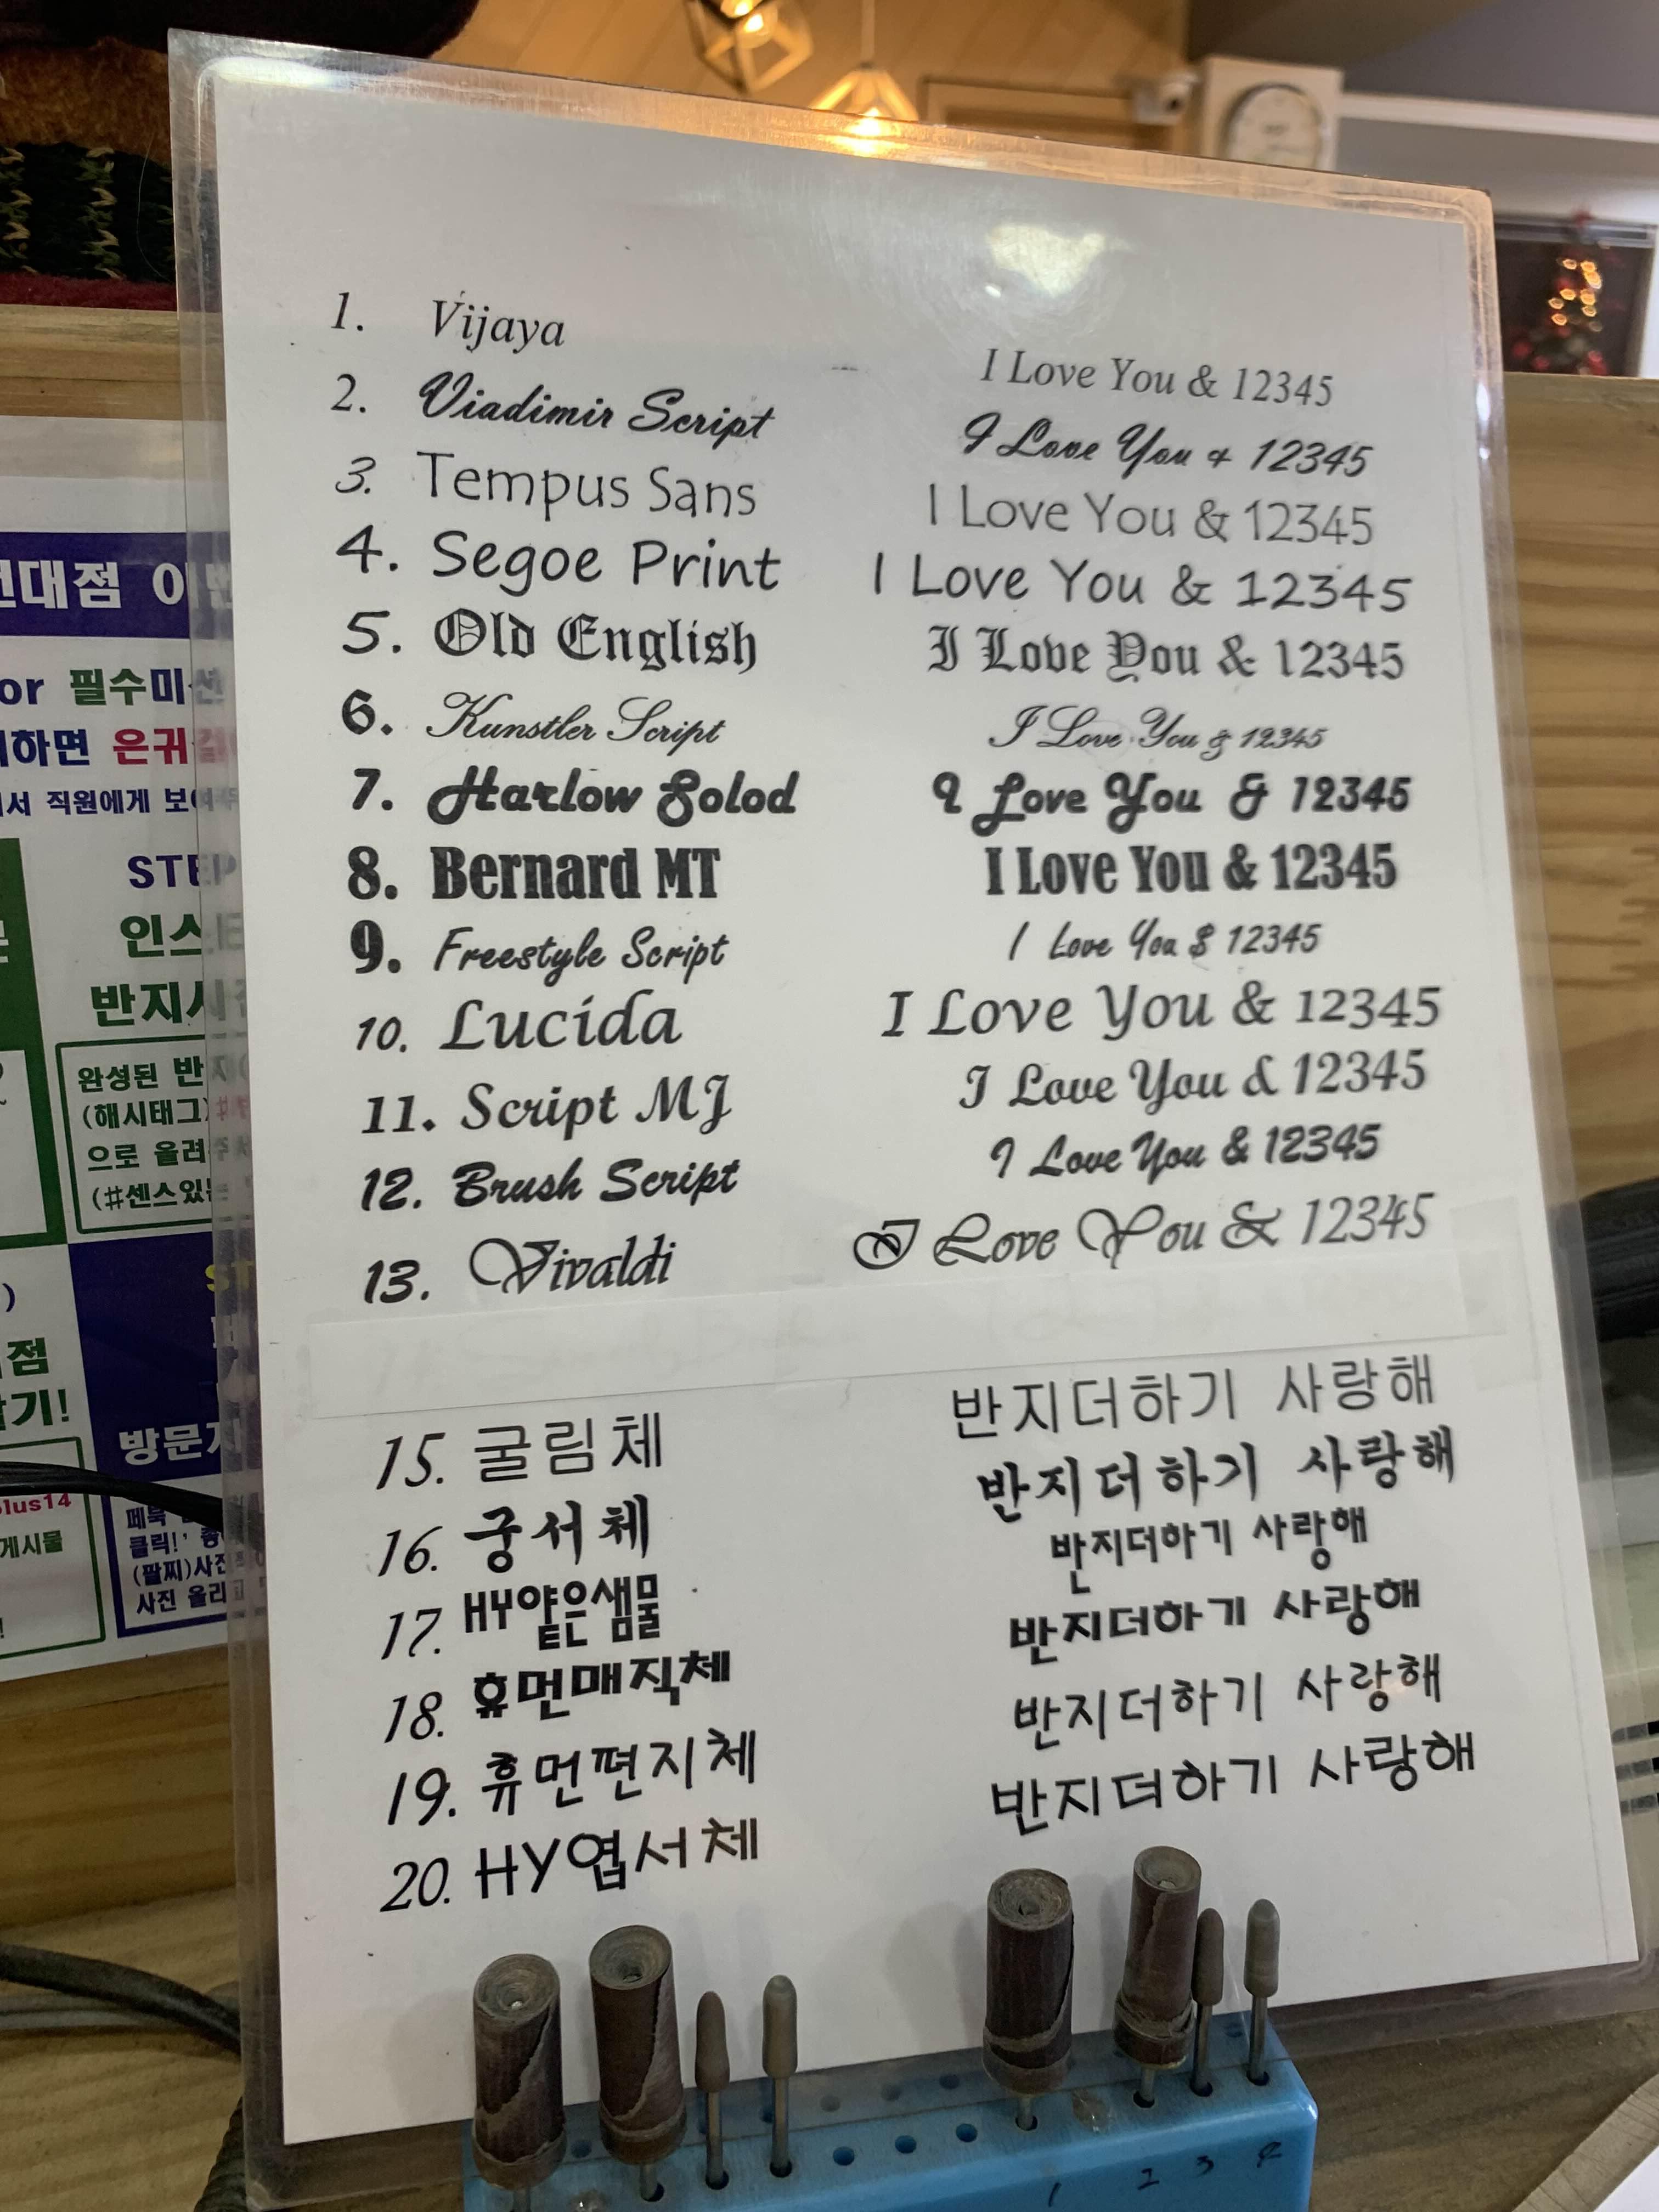 1. Vijaya I Love You & 12345
2. Viadimir Script I Love You & 12345
3. Tempus Sans I Love You & 12345
4. Segoe Print I Love You & 12345
5. Old English I Love You & 12345
6. Kunstler Script I Love You & 12345
7. Harlow Solod I Love You & 12345
8. Bernard MT I Love You & 12345
9. Freestyle Script I Love You $ 12345
10. Lucida I Love You & 12345
11. Script MJ I Love You & 12345
12. Brush Script I Love You & 12345
13. Vivaldi I Love You & 12345
15. 굴림체 반지더하기 사랑해
16. 궁서체 반지더하기 사랑해
17. HY얕은샘물 반지더하기 사랑해
18. 휴먼매직체 반지더하기 사랑해
19. 휴먼편지체 반지더하기 사랑해
20. HY엽서체 반지더하기 사랑해
1 2 3 4
or 필수미션
하면 은귀걸
서 직원에게 보여주
STEP
인스타
완성된 반지
(해시태그)
으로 올려주
(#센스있는
점
기!
방문
plus14
게시물
클릭!'
(팔찌)사진
사진 올리고